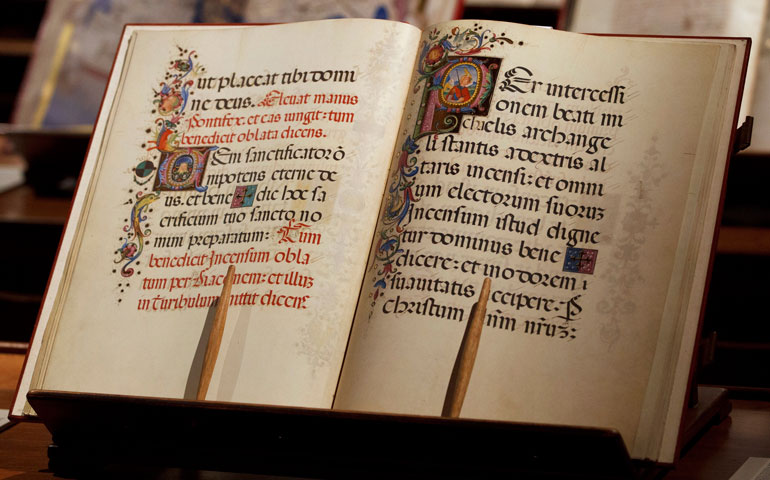 ut placeat tibi domi
ne deus. Eleuat manus
Pontifex. et eas iungit: tum
benedicit oblata dicens.
Veni sanctificatorō
nipotens eterne de
us. et bene ✠ dic hoc sa
crificium tuo sancto no
mini preparatum: Tum
benedicit Incensum obla
tum per Diaconem: et illuz
in Turibulum mittit dicens
Per intercessi
onem beati mi
chaelis archange
li stantis a dextris al
taris incensi: et omni
um electorum suoruz
incensum istud digne
tur dominus bene ✠
dicere: et in odorem
suauitatis accipere: P
christum dn̄m nr̄uz: